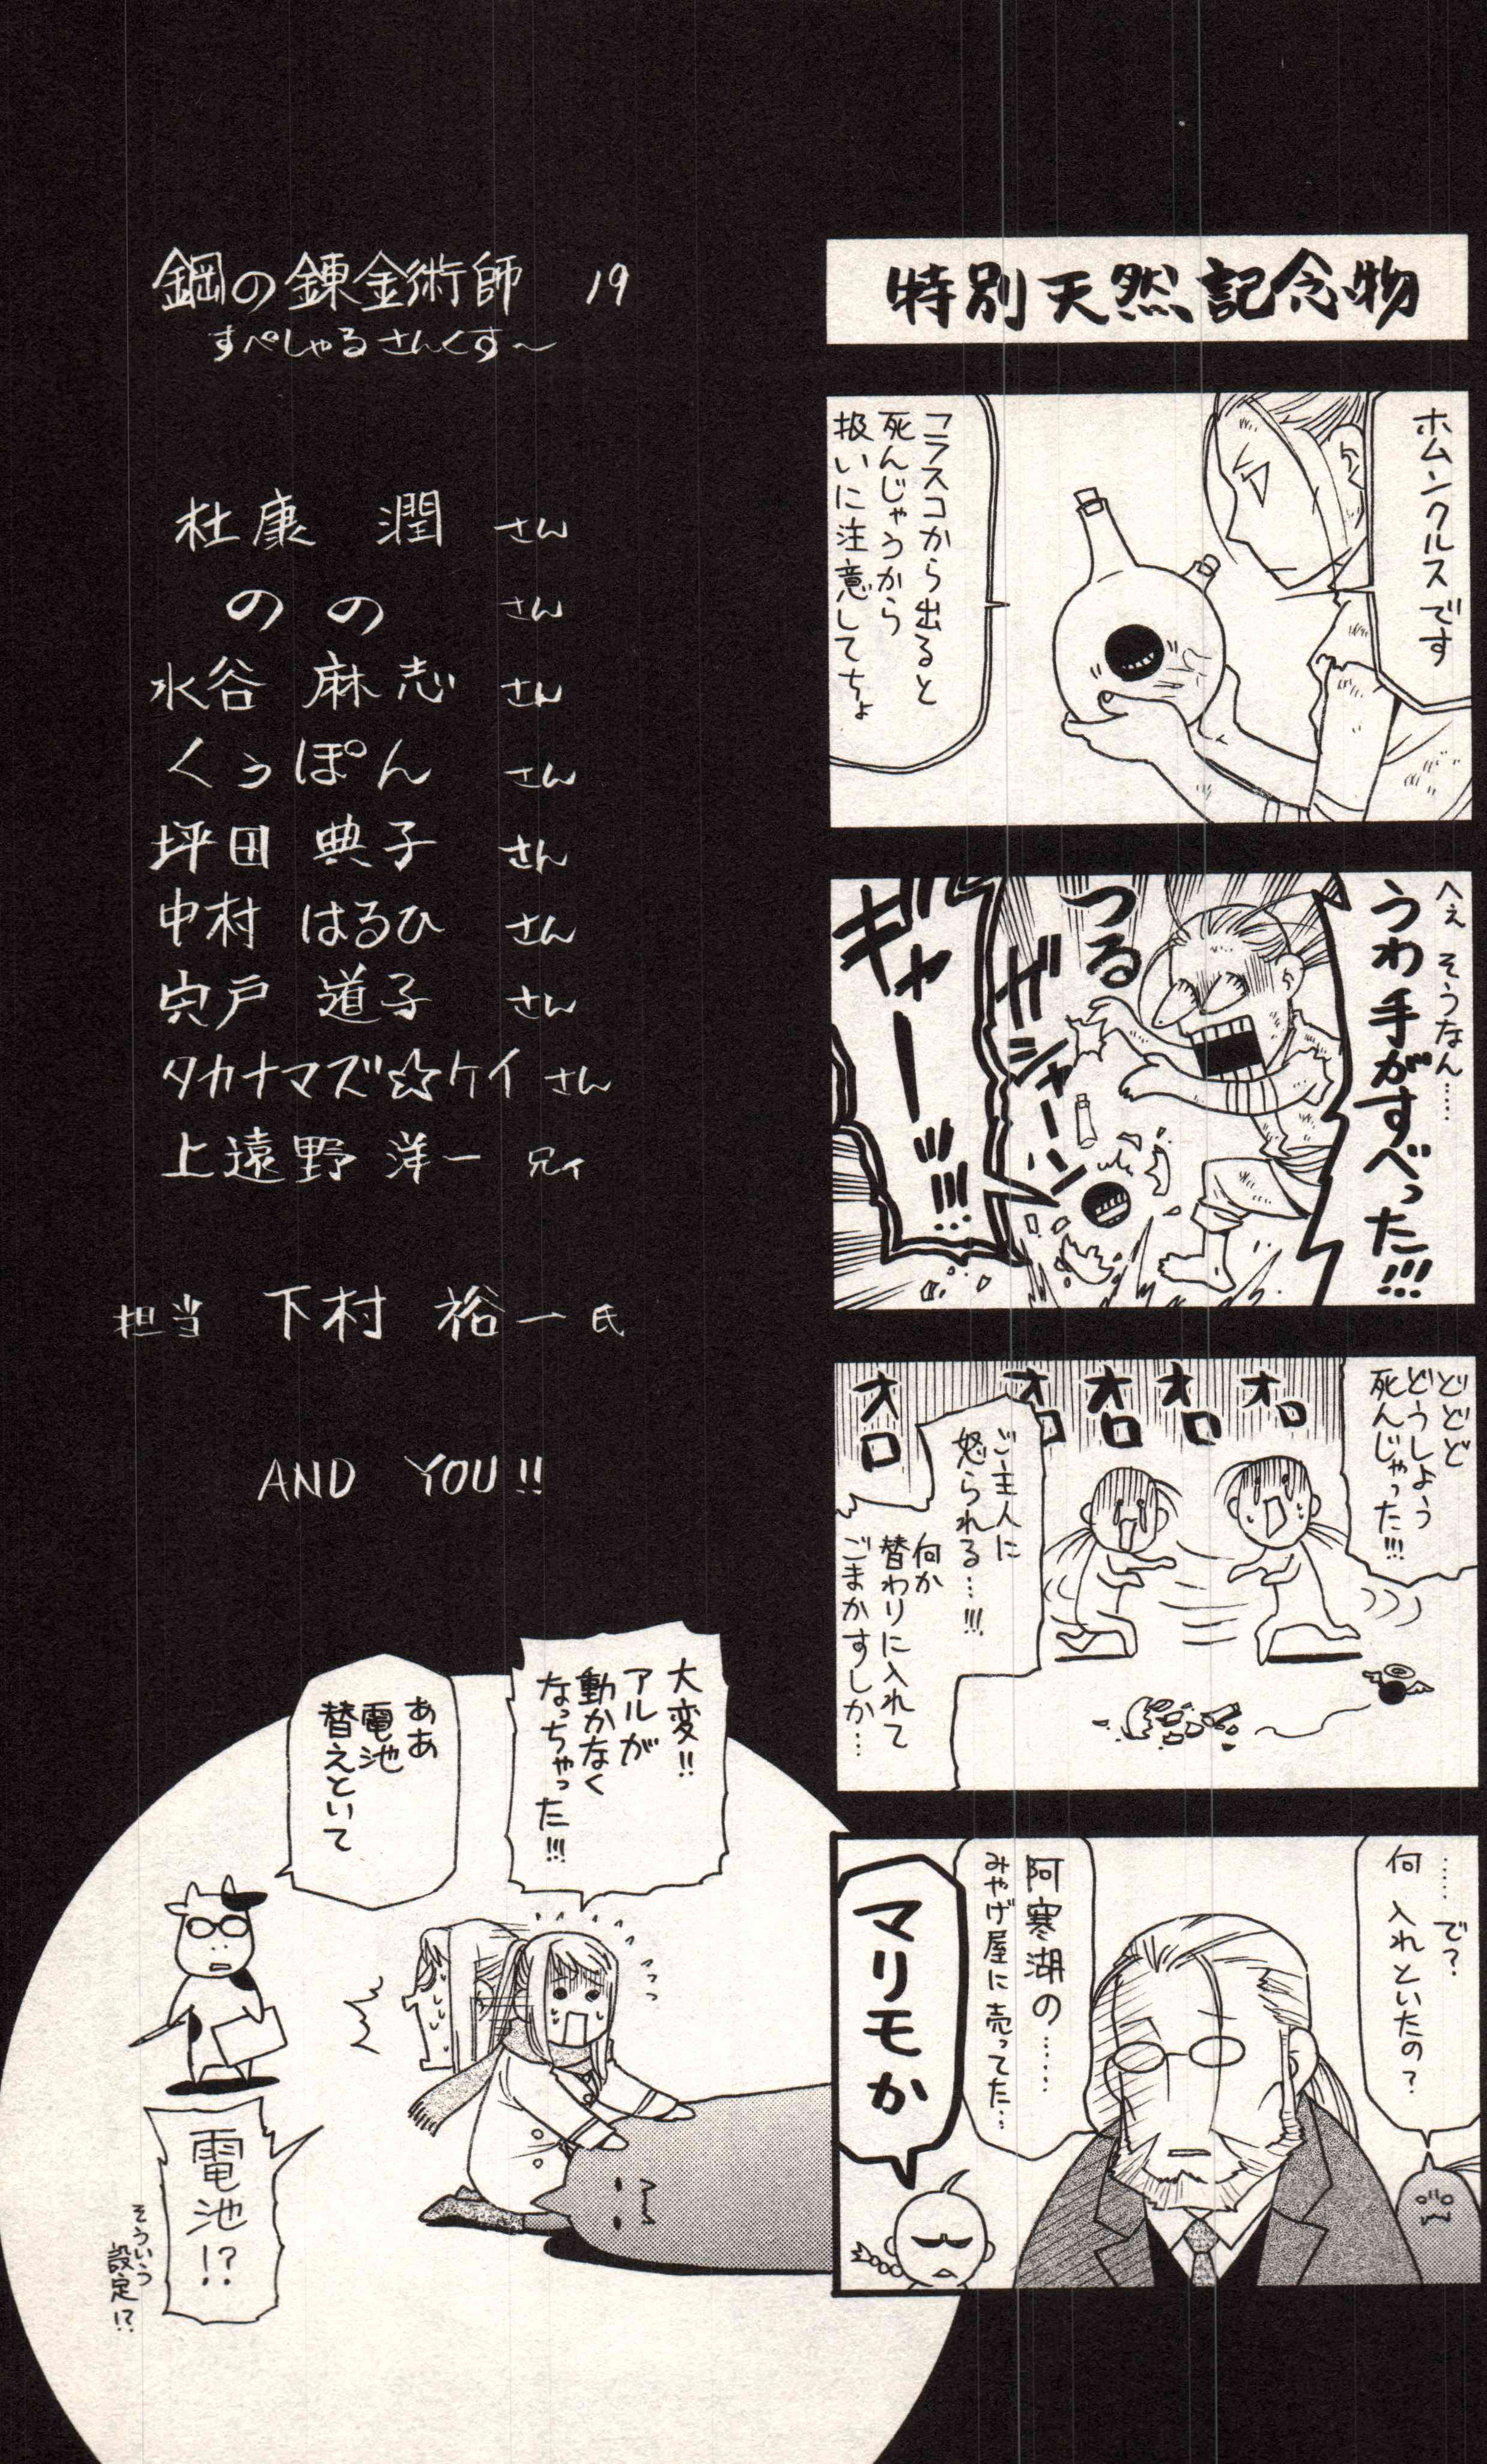 特別天然記念物
ホムンクルスです
フラスコから出ると
死んじゃうから
扱いに注意してちょ
へぇ そうなん……
うわ手がすべった!!!
つる
ガシャーン
ギャーーー!!!
どどど
どうしよう
死んじゃった!!!
オロ
オロ
オロ
オロ
オロ
ご主人に
怒られる…!!!
何か
替わりに入れて
ごまかすしか…
……で?
何 入れといたの?
阿寒湖の……
みやげ屋に売ってた…
マリモか
鋼の錬金術師 19
すぺしゃるさんくす〜
杜康 潤 さん
のの さん
水谷 麻志 さん
くぅぽん さん
坪田 典子 さん
中村 はるひ さん
宍戸 道子 さん
タカナマズ☆ケイ さん
上遠野 洋一 兄ィ
担当 下村 裕一 氏
AND YOU!!
大変!!
アルが
動かなく
なっちゃった!!!
ああ
電池
替えといて
電池!?
そういう
設定!?